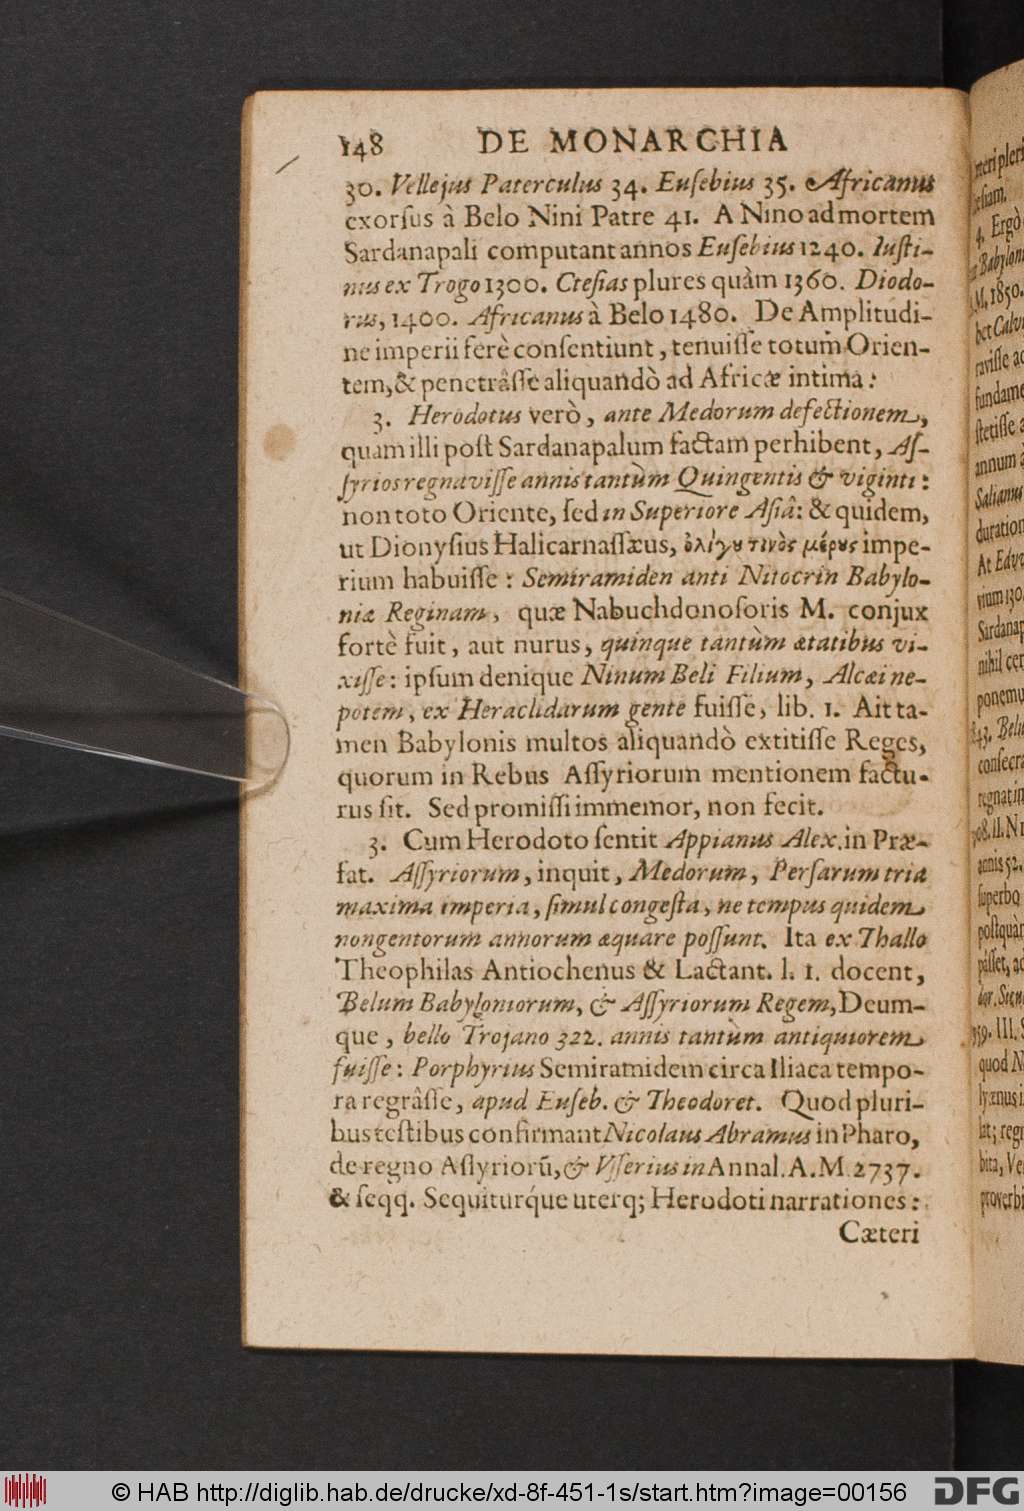 148 DE MONARCHIA
30. Vellejus Paterculus 34. Euſebius 35. Africanus
exorſus à Belo Nini Patre 41. A Nino ad mortem
Sardanapali computant annos Euſebius 1240. Iuſti-
nus ex Trogo 1300. Cteſias plures quàm 1360. Diodo-
rus, 1400. Africanus à Belo 1480. De Amplitudi-
ne imperii ferè conſentiunt, tenuiſſe totum Orien-
tem, & penetrâſſe aliquandò ad Africæ intima:
3. Herodotus verò, ante Medorum defectionem,
quam illi poſt Sardanapalum factam perhibent, Aſ-
ſyrios regnaviſſe annis tantùm Quingentis & viginti:
non toto Oriente, ſed in Superiore Aſiâ: & quidem,
ut Dionyſius Halicarnaſſæus, ὀλίγου τινὸς μέρους impe-
rium habuiſſe: Semiramiden anti Nitocrin Babylo-
niæ Reginam, quæ Nabuchdonoſoris M. conjux
fortè fuit, aut nurus, quinque tantùm ætatibus vi-
xiſſe: ipſum denique Ninum Beli Filium, Alcæi ne-
potem, ex Heraclidarum gente fuiſſe, lib. 1. Ait ta-
men Babylonis multos aliquandò extitiſſe Reges,
quorum in Rebus Aſſyriorum mentionem factu-
rus ſit. Sed promiſſi immemor, non fecit.
3. Cum Herodoto ſentit Appianus Alex. in Præ-
fat. Aſſyriorum, inquit, Medorum, Perſarum tria
maxima imperia, ſimul congeſta, ne tempus quidem
nongentorum annorum æquare poſſunt. Ita ex Thallo
Theophilas Antiochenus & Lactant. l. 1. docent,
Belum Babyloniorum, & Aſſyriorum Regem, Deum-
que, bello Trojano 322. annis tantùm antiquiorem
fuiſſe: Porphyrius Semiramidem circa Iliaca tempo-
ra regrâſſe, apud Euſeb. & Theodoret. Quod pluri-
bus teſtibus confirmant Nicolaus Abramus in Pharo,
de regno Aſſyriorū, & Uſſerius in Annal. A. M. 2737.
& ſeqq. Sequiturq́ue uterq; Herodoti narrationes:
Cæteri
4. Ergò
Babylon
M. 1850.
bet Calv
raviſſe
fundame
ſtetiſſe a
annum a
Salianus
duration
At Edv
vium 130.
Sardanap
nihil cer
ponemu
843. Belu
conſecra
regnat in
908. II. Ni
annis 52.
ſuperbo
poſtquàm
paſſet, ac
959. III. S
quod N
lat; regn
bita, Ve
proverbi
© HAB http://diglib.hab.de/drucke/xd-8f-451-1s/start.htm?image=00156
DFG